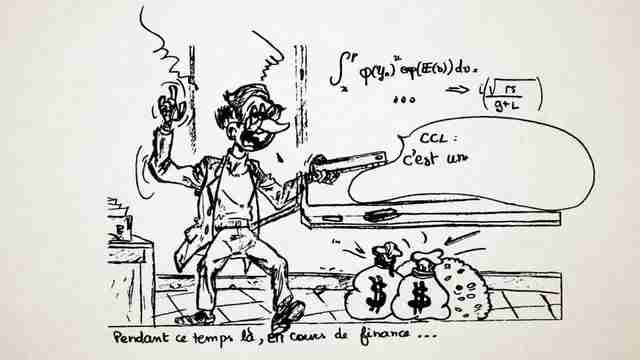 ∫ₓʳ φ(yₙ)ⁿ exp(E(v)) dv.
... ⇒ (√rs / g+L)
CCL :
c'est un
$ $
Pendant ce temps là, en cours de finance ...